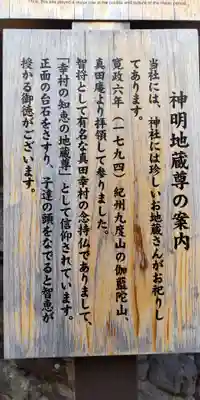 神明地蔵尊の案内
当社には、神社には珍しいお地蔵さんがお祀りし
てあります。
寛政六年（一七九四）紀州九度山の伽藍陀山、
真田庵より拝領して参りました。
智将として有名な真田幸村の念持仏でありまして、
「幸村の知恵の地蔵尊」として信仰されています。
正面の台石をさすり、子達の頭をなでると智恵が
授かる御徳がございます。